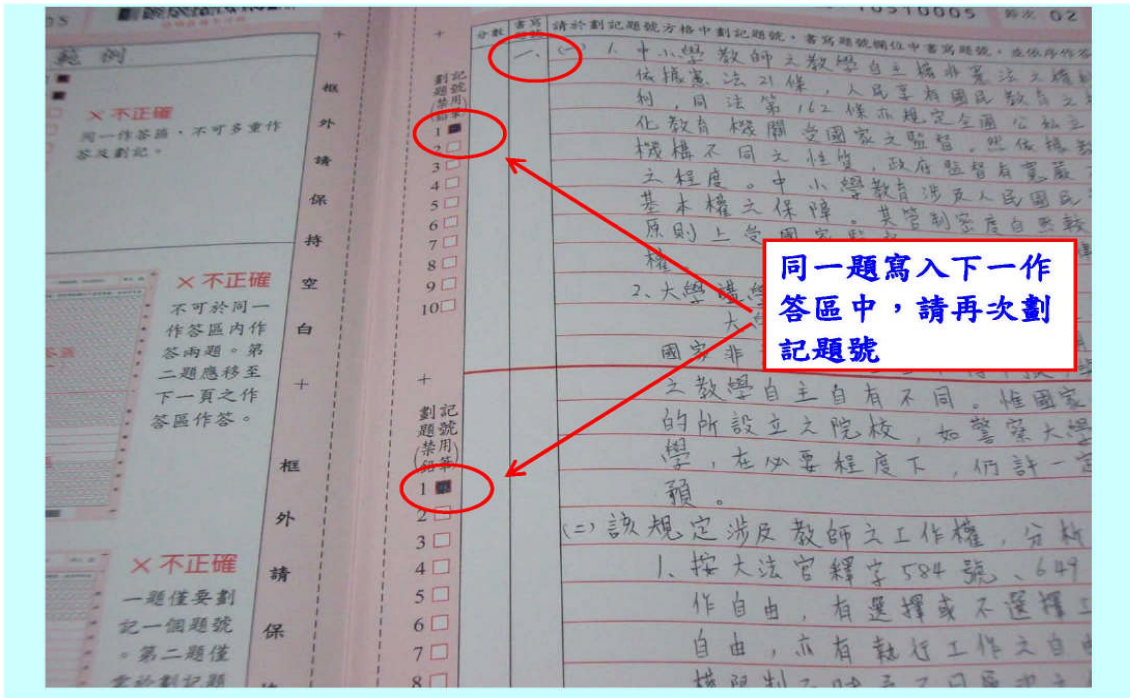 10510005 卷次 02
範例
×不正確
同一作答區，不可多重作
答及劃記。
×不正確
不可於同一
作答區內作
答兩題。第
二題應移至
下一頁之作
答區作答。
×不正確
一題僅要劃
記一個題號
。第二題僅
框外請保持空白
框外請保
劃記
題號
(禁用
鉛筆)
1
2
3
4
5
6
7
8
9
10
劃記
題號
(禁用
鉛筆)
1
2
3
4
5
6
7
8
分數
書寫
題號
請於劃記題號方格中劃記題號，書寫題號欄位中書寫題號，並依序作答
一、
(一) 1. 中小學教師之教學自主權非憲法之權利
依據憲法21條，人民享有國民教育之
利，同法第162條亦規定全國公私立
化教育機關受國家之監督。然依據
機構不同之性質，政府監督有寬嚴
之程度。中小學教育涉及人民國民
基本權之保障。其管制密度自然較
原則上受國家
權
2、大學講學
大
國家非
之教學自主自有不同。惟國家
的所設立之院校，如警察大學
學，在必要程度下，仍許一定
預。
(二)該規定涉及教師之工作權，分析
1、按大法官釋字584號、649
作自由，有選擇或不選擇工
自由，亦有執行工作之自由
同一題寫入下一作
答區中，請再次劃
記題號